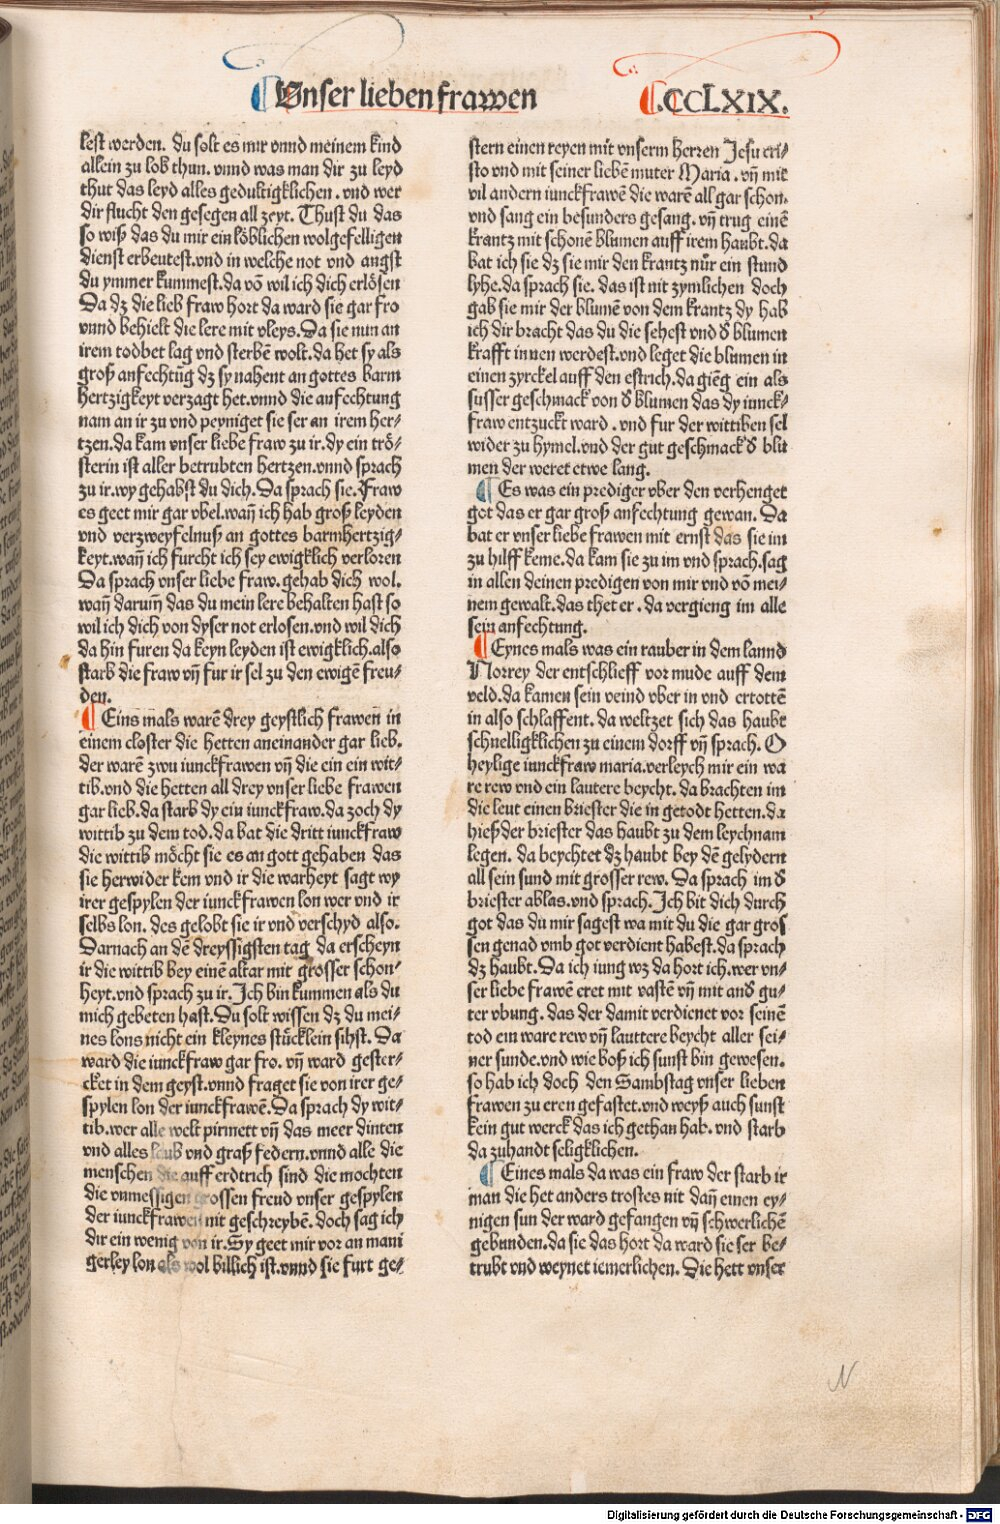 Vnser lieben frawen
.CCLXIX.
lest werden. du solt es mir vnnd meinem kind
allein zu lob thun. vnnd was man dir zu leyd
thut das leyd alles gedultigklichen. vnd wer
dir flucht den gesegen all zeyt. Thust du das
so wiß das du mir ein löblichen wolgefelligen
dienst erbeutest.vnd in welche not vnd angst
du ymmer kummest.da võ wil ich dich erlösen
Da dz die lieb fraw hort da ward sie gar fro
vnnd behielt die lere mit vleys.Da sie nun an
irem todbet lag vnd sterbẽ wolt.da het sy als
groß anfechtũg dz sy nahent an gottes barm
hertzigkeyt verzagt het.vnnd die anfechtung
nam an ir zu vnd peyniget sie ser an irem her⸗
tzen.da kam vnser liebe fraw zu ir.dy ein trö⸗
sterin ist aller betrubten hertzen.vnnd sprach
zu ir.wy gehabst du dich.Da sprach sie.Fraw
es geet mir gar vbel.wañ ich hab groß leyden
vnd verzweyfelnuß an gottes barmhertzig⸗
keyt.wañ ich furcht ich sey ewigklich verloren
Da sprach vnser liebe fraw.gehab dich wol.
wañ darum̃ das du mein lere behalten hast so
wil ich dich von dyser not erlosen.vnd wil dich
da hin furen da keyn leyden ist ewigklich.also
starb die fraw vñ fur ir sel zu den ewigẽ freu⸗
den.
¶ Eins mals warẽ drey geystlich frawen in
einem closter die hetten aneinander gar lieb.
der warẽ zwu iunckfrawen vñ die ein ein wit⸗
tib.vnd die hetten all drey vnser liebe frawen
gar lieb.da starb dy ein iunckfraw.da zoch dy
wittib zu dem tod.da bat die dritt iunckfraw
die wittib möcht sie es an gott gehaben das
sie herwider kem vnd ir die warheyt sagt wy
irer gespylen der iunckfrawen lon wer vnd ir
selbs lon. des gelobt sie ir vnd verschyd also.
Darnach an dẽ dreyssigsten tag da erscheyn
ir die wittib bey einẽ altar mit grosser schon⸗
heyt.vnd sprach zu ir.Ich bin kummen als du
mich gebeten hast.Du solt wissen dz du mei⸗
nes lons nicht ein kleynes stücklein sihst. Da
ward die iunckfraw gar fro. vñ ward gester⸗
cket in dem geyst.vnnd fraget sie von irer ge⸗
spylen lon der iunckfrawẽ.Da sprach dy wit⸗
tib.wer alle welt pirmett vñ das meer dinten
vnd alles laub vnd graß federn.vnnd alle die
menschen die auff erdtrich sind die mochten
die vnmessigen grossen freud vnser gespylen
der iunckfrawen nit geschreybẽ. doch sag ich
dir ein wenig von ir.Sy geet mir vor an mani
gerley lon als wol billich ist.vnnd sie furt ge⸗
stern einen reyen mit vnserm herren Jesu cri⸗
sto vnd mit seiner liebẽ muter Maria. vñ mit
vil andern iunckfrawẽ die warẽ all gar schon.
vnd sang ein besunders gesang. vñ trug einẽ
krantz mit schonẽ blumen auff irem haubt.da
bat ich sie dz sie mir den krantz nür ein stund
lyhe.da sprach sie. das ist nit zymlichen doch
gab sie mir der blumẽ von dem krantz dy hab
ich dir bracht das du die sehest vnd ď blumen
krafft innen werdest.vnd leget die blumen in
einen zyrckel auff den estrich.da gieng ein als
susser geschmack von ď blumen das dy iunck⸗
fraw entzuckt ward. vnd fur der wittiben sel
wider zu hymel.vnd der gut geschmack ď blu
men der weret etwe lang.
¶ Es was ein prediger vber den verhenget
got das er gar groß anfechtung gewan. Da
bat er vnser liebe frawen mit ernst das sie im
zu hilff keme.da kam sie zu im vnd sprach.sag
in allen deinen predigen von mir vnd võ mei⸗
nem gewalt.das thet er. da vergieng im alle
sein anfechtung.
¶ Eynes mals was ein rauber in dem lannd
Norrey der entschlieff vor mude auff dem
veld.da kamen sein veind vber in vnd ertottẽ
in also schlaffent. da weltzet sich das haubt
schnelligklichen zu einem dorff vñ sprach. O
heylige iunckfraw maria.verleych mir ein wa
re rew vnd ein lautere beycht. da brachten im
die leut einen briester die in getodt hetten.da
hieß der briester das haubt zu dem leychnam
legen. da beychtet dz haubt bey dẽ gelydern
all sein sund mit grosser rew. Da sprach im ď
briester ablas.vnd sprach.Ich bit dich durch
got das du mir sagest wa mit du die gar gros
sen genad vmb got verdient habest.da sprach
dz haubt. Da ich iung wz da hort ich.wer vn⸗
ser liebe frawẽ eret mit vastẽ vñ mit anď gu⸗
ter vbung. das der damit verdienet vor seinẽ
tod ein ware rew vñ lauttere beycht aller sei⸗
ner sunde.vnd wie boß ich sunst bin gewesen.
so hab ich doch den Sambstag vnser lieben
frawen zu eren gefastet.vnd weyß auch sunst
kein gut werck das ich gethan hab. vnd starb
da zuhandt seligklichen.
¶ Eines mals da was ein fraw der starb ir
man die het anders trostes nit dañ einen ey⸗
nigen sun der ward gefangen vñ schwerlichẽ
gebunden.da sie das hort da ward sie ser be⸗
trubt vnd weynet iemerlichen. Die hett vnser
N
Digitalisierung gefördert durch die Deutsche Forschungsgemeinschaft - DFG